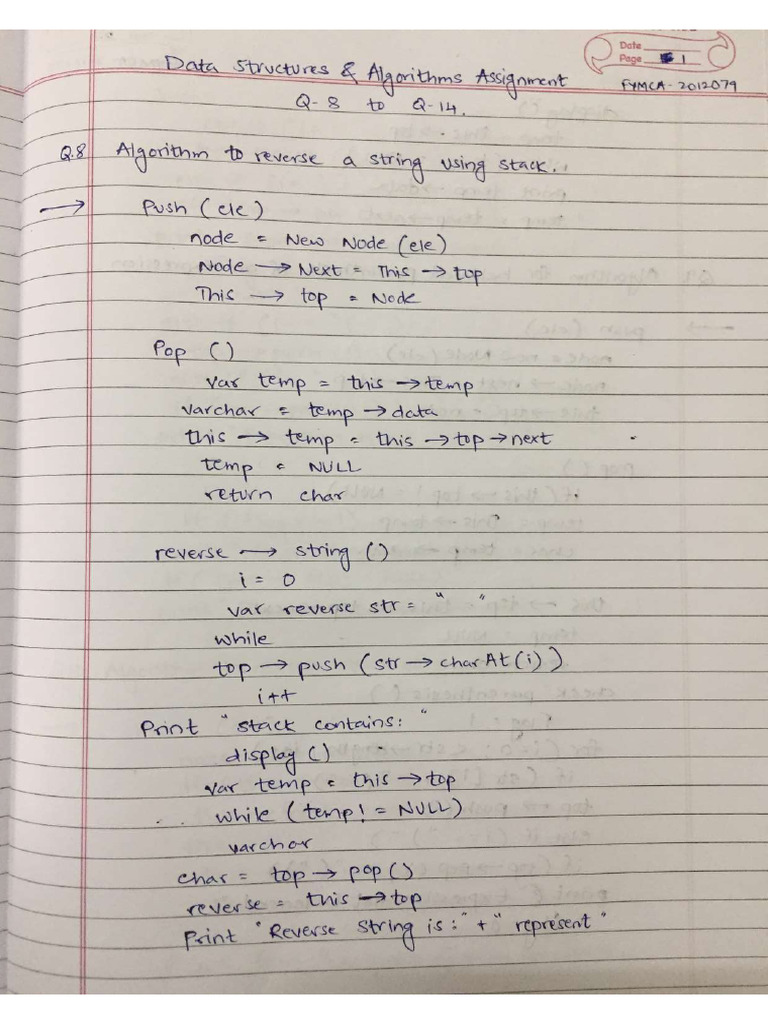 Date
Page 1
Data structures & Algorithms Assignment
FYMCA-2012079
Q-8 to Q-14.
Q.8 Algorithm to reverse a string using stack.
→ Push (ele)
node = New Node (ele)
Node → Next = This → top
This → top = Node
Pop ()
var temp = this → temp
varchar = temp → data
this → temp = this → top → next
temp = NULL
return char
reverse → string ()
i = 0
var reverse str = " "
while
top → push (str → charAt(i))
i++
Print "stack contains: "
display ()
var temp = this → top
while (temp! = NULL)
varchar
char = top → pop ()
reverse = this → top
Print "Reverse string is:" + "represent"